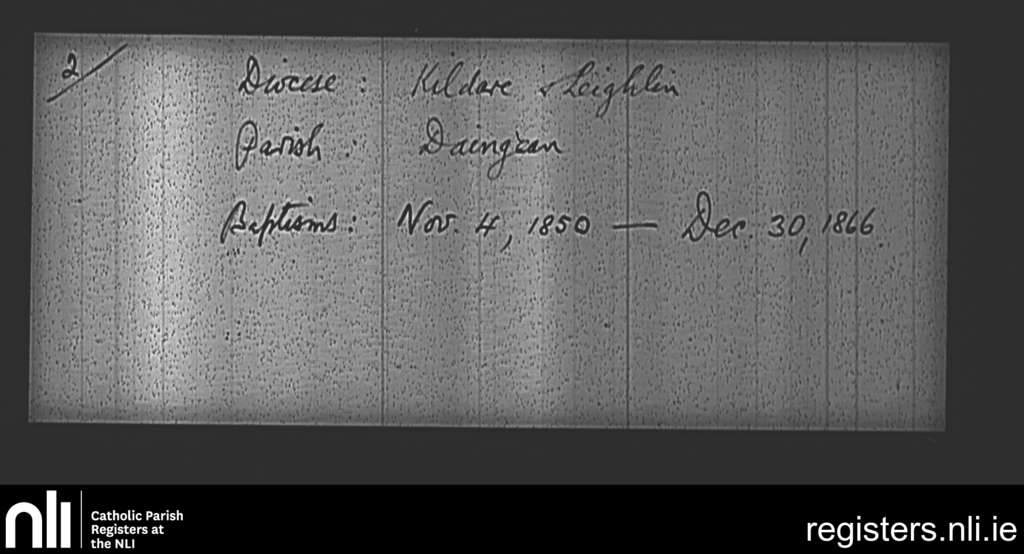 2/
Diocese : Kildare & Leighlin
Parish : Daingean
Baptisms : Nov. 4, 1850 — Dec. 30, 1866
nli
Catholic Parish
Registers at
the NLI
registers.nli.ie